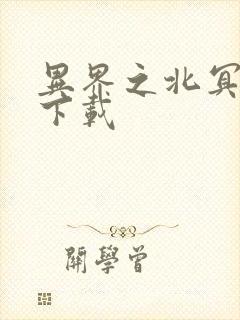 異界之北冥
下載
開學曾